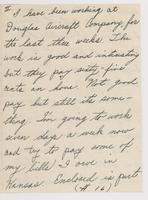 I have been working at
Douglas Aircraft Company for
the last three weeks. The
work is good and interesting
but they pay sixty five
cents an hour. Not good
pay but still its some-
thing. I'm going to work
seven days a week now
and try to pay some of
my bills I owe in
Kansas. Enclosed is part